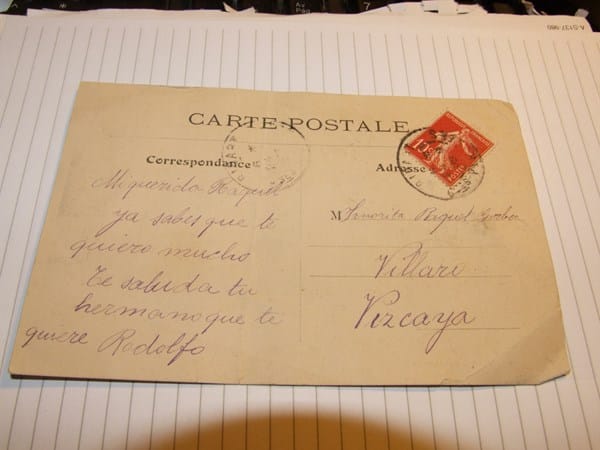 CARTE POSTALE
Correspondance
Mi querida Raquel
ya sabes que te
quiero mucho
Te saluda tu
hermano que te
quiere Rodolfo
Adresse
M Señorita
Villaro
Vizcaya
A-5137-980